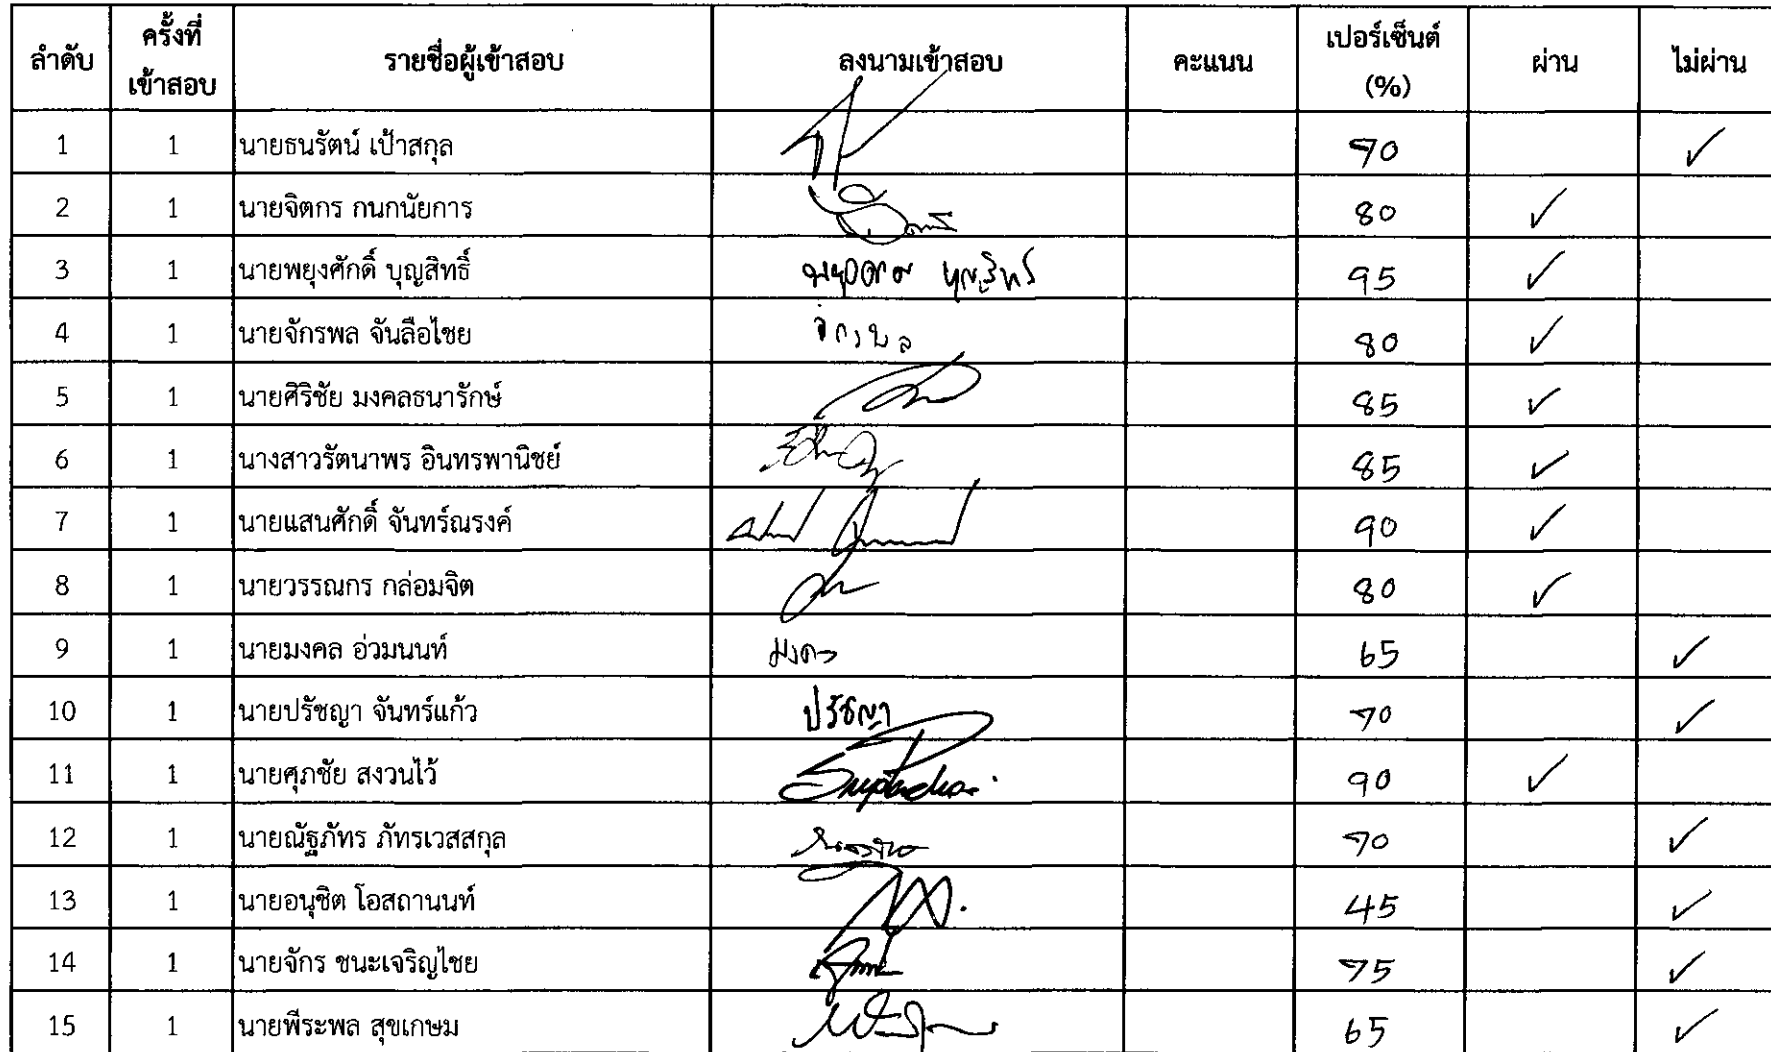 ลำดับ ครั้งที่เข้าสอบ รายชื่อผู้เข้าสอบ ลงนามเข้าสอบ คะแนน เปอร์เซ็นต์ (%) ผ่าน ไม่ผ่าน
1 1 นายธนรัตน์ เป้าสกุล 70 ✓
2 1 นายจิตกร กนกนัยการ 80 ✓
3 1 นายพยุงศักดิ์ บุญสิทธิ์ 95 ✓
4 1 นายจักรพล จันลือไชย จักรพล 80 ✓
5 1 นายศิริชัย มงคลธนารักษ์ 85 ✓
6 1 นางสาวรัตนาพร อินทรพานิชย์ 85 ✓
7 1 นายแสนศักดิ์ จันทร์ณรงค์ 90 ✓
8 1 นายวรรณกร กล่อมจิต 80 ✓
9 1 นายมงคล อ่วมนนท์ มงคล 65 ✓
10 1 นายปรัชญา จันทร์แก้ว ปรัชญา 70 ✓
11 1 นายศุภชัย สงวนไว้ 90 ✓
12 1 นายณัฐภัทร ภัทรเวสสกุล 70 ✓
13 1 นายอนุชิต โอสถานนท์ 45 ✓
14 1 นายจักร ชนะเจริญไชย 75 ✓
15 1 นายพีระพล สุขเกษม 65 ✓